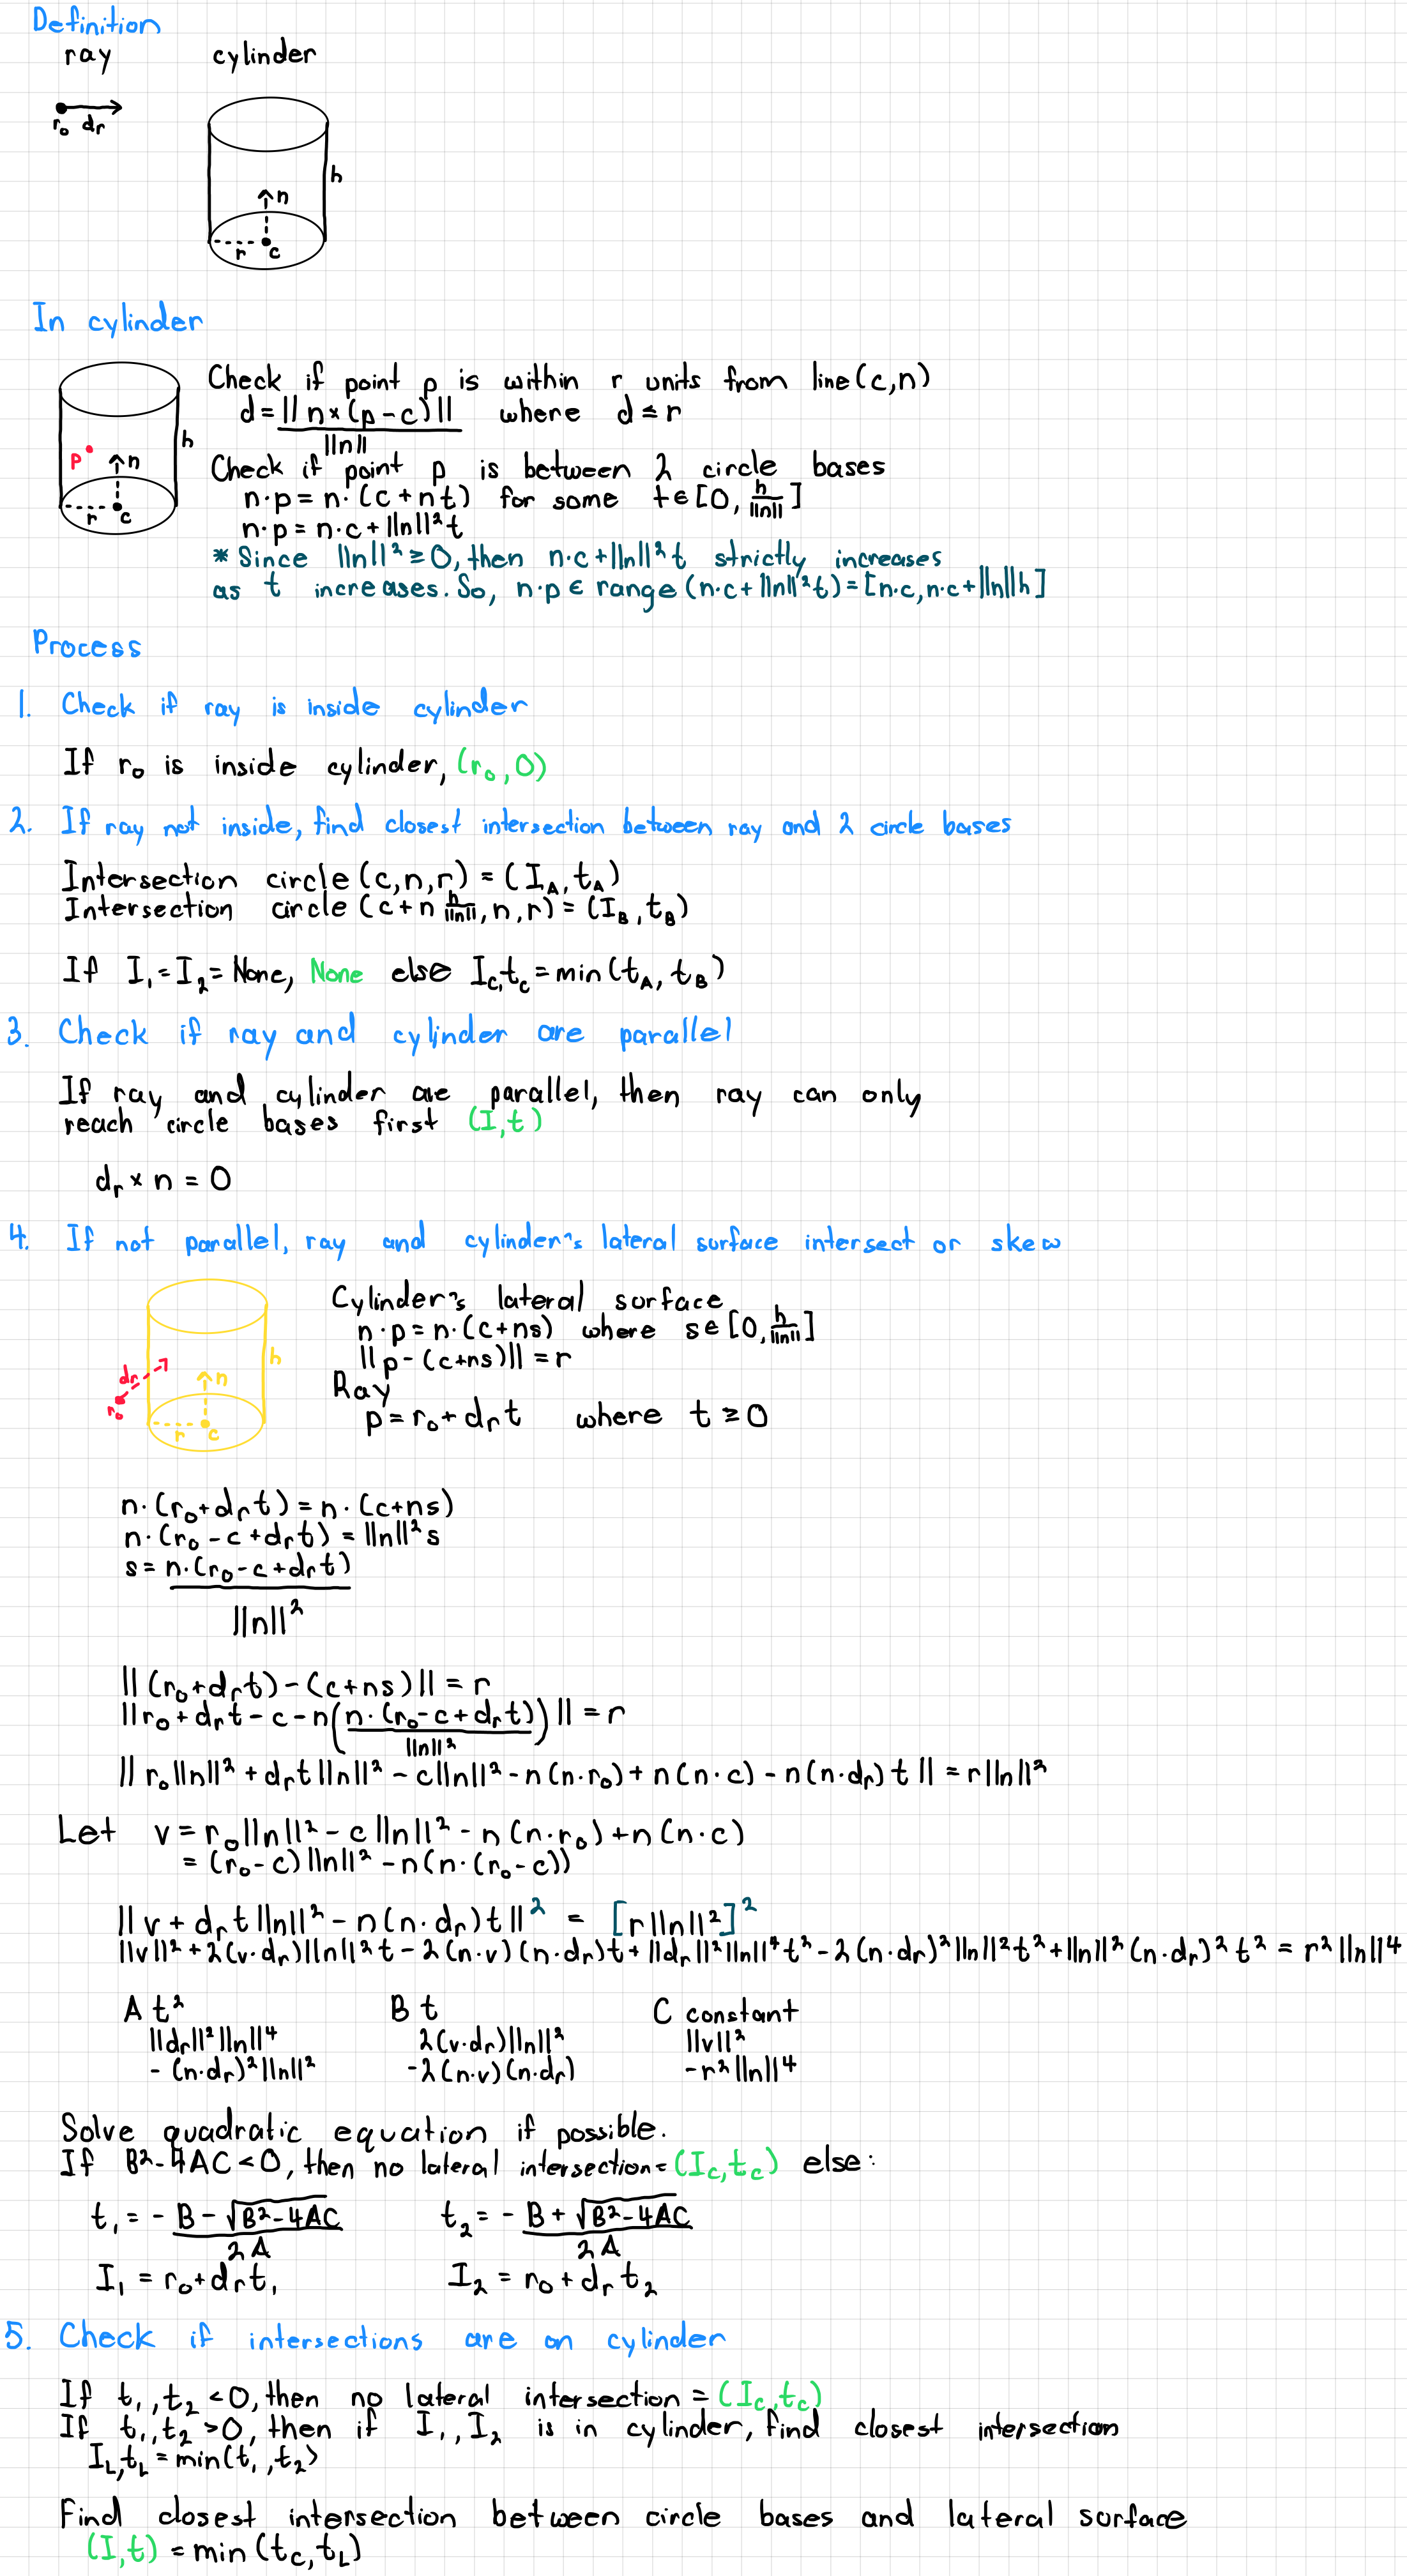 Definition
ray cylinder
r₀ dᵣ
h
n
r c
In cylinder
Check if point p is within r units from line(c,n)
d = ||n×(p-c)|| / ||n|| where d ≤ r
p n h
r c
Check if point p is between 2 circle bases
n·p = n·(c+nt) for some t∈[0, h/||n||]
n·p = n·c + ||n||²t
* Since ||n||² ≥ 0, then n·c + ||n||²t strictly increases
as t increases. So, n·p ∈ range (n·c + ||n||²t) = [n·c, n·c + ||n||h]
Process
1. Check if ray is inside cylinder
If r₀ is inside cylinder, (r₀, 0)
2. If ray not inside, find closest intersection between ray and 2 circle bases
Intersection circle (c, n, r) = (I_A, t_A)
Intersection circle (c+n h/||n||, n, r) = (I_B, t_B)
If I₁ = I₂ = None, None else I_c, t_c = min(t_A, t_B)
3. Check if ray and cylinder are parallel
If ray and cylinder are parallel, then ray can only
reach circle bases first (I, t)
dᵣ × n = 0
4. If not parallel, ray and cylinder's lateral surface intersect or skew
Cylinder's lateral surface
n·p = n·(c+ns) where s∈[0, h/||n||]
||p-(c+ns)|| = r
Ray
p = r₀ + dᵣt where t ≥ 0
dᵣ r₀
n h
r c
n·(r₀+dᵣt) = n·(c+ns)
n·(r₀-c+dᵣt) = ||n||²s
s = n·(r₀-c+dᵣt) / ||n||²
||(r₀+dᵣt)-(c+ns)|| = r
||r₀+dᵣt-c-n(n·(r₀-c+dᵣt) / ||n||²)|| = r
||r₀||n||² + dᵣt||n||² - c||n||² - n(n·r₀) + n(n·c) - n(n·dᵣ)t|| = r||n||²
Let v = r₀||n||² - c||n||² - n(n·r₀) + n(n·c)
= (r₀-c)||n||² - n(n·(r₀-c))
||v + dᵣt||n||² - n(n·dᵣ)t||² = [r||n||²]²
||v||² + 2(v·dᵣ)||n||²t - 2(n·v)(n·dᵣ)t + ||dᵣ||²||n||⁴t² - 2(n·dᵣ)²||n||²t² + ||n||²(n·dᵣ)²t² = r²||n||⁴
A t² B t C constant
||dᵣ||²||n||⁴ 2(v·dᵣ)||n||² ||v||²
-(n·dᵣ)²||n||² -2(n·v)(n·dᵣ) -r²||n||⁴
Solve quadratic equation if possible.
If B²-4AC < 0, then no lateral intersection = (I_c, t_c) else:
t₁ = - B - √(B²-4AC) / 2A t₂ = - B + √(B²-4AC) / 2A
I₁ = r₀+dᵣt₁ I₂ = r₀+dᵣt₂
5. Check if intersections are on cylinder
If t₁, t₂ < 0, then no lateral intersection = (I_c, t_c)
If t₁, t₂ > 0, then if I₁, I₂ is in cylinder, find closest intersection
I_L, t_L = min(t₁, t₂)
Find closest intersection between circle bases and lateral surface
(I, t) = min(t_c, t_L)